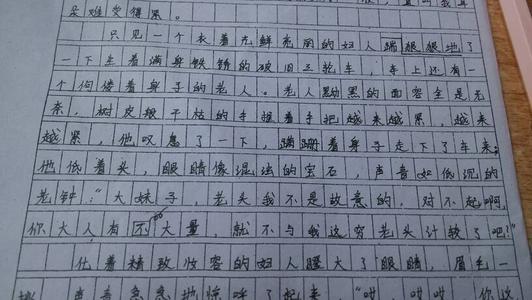 呆难受得累。
只见一个衣着光鲜亮丽的妇人踹狠狠地了
一下坐着满身铁锈的破旧三轮车，车上还有一
个佝偻着身子的老人。老人黝黑的面容全是无
奈，树皮般干枯的手握着手把越来越紧，越来
越紧，他叹息了一下，蹒跚着身子走下了车来，
他低着头，眼睛像混浊的宝石，声音如低沉的
老钟：“大妹子，老头我不是故意的，对不起啊，
你大人有不大量，就不与我这穷老头计较了吧？”
化着精致妆容的妇人瞪大了眼睛，眉毛一